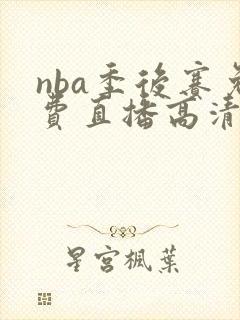 nba季後賽免
費直播高清
星宮楓葉